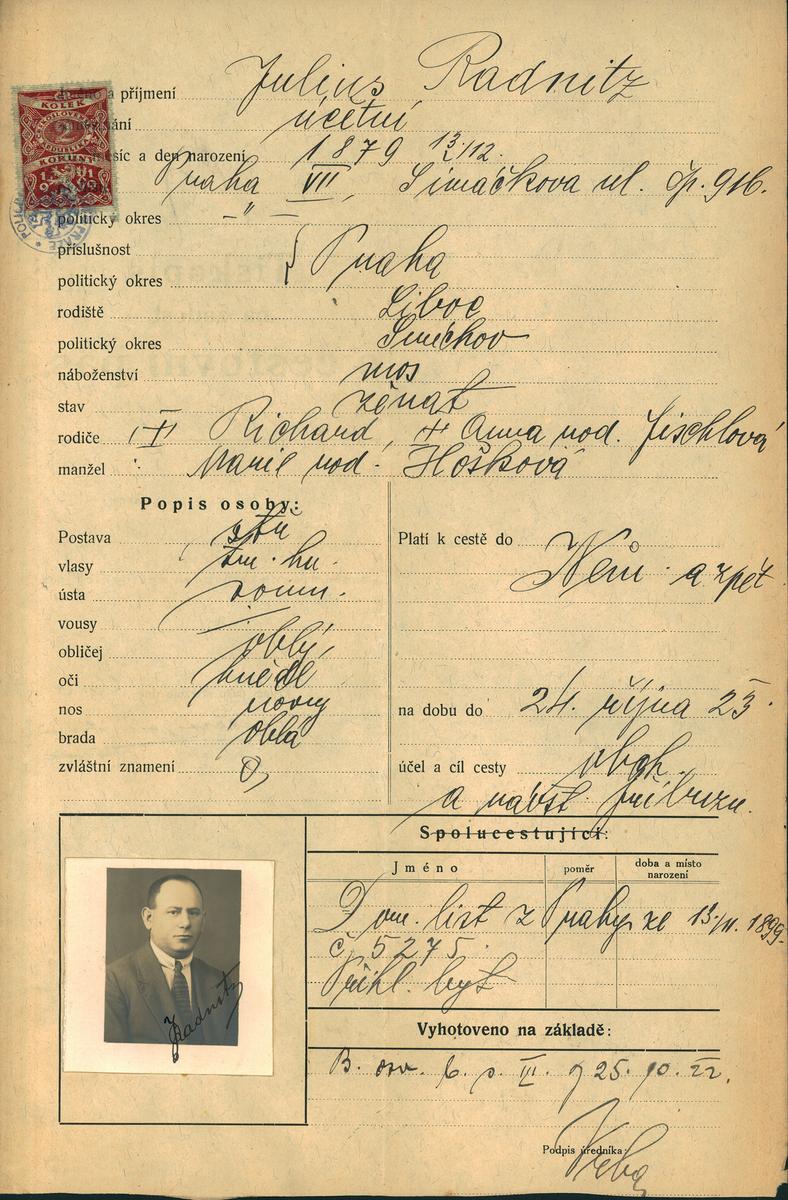 Jméno a příjmení Julius Radnitz
zaměstnání účetní
měsíc a den narození 1879 13/12.
Praha VII, Simáčkova ul. čp. 916.
politický okres – " –
příslušnost Praha
politický okres
rodiště Liboc
politický okres Smíchov
náboženství mos
stav ženat
rodiče Richard, Anna rod. Fischlová
manžel Marie rod. Hošková
Popis osoby:
Postava stř
vlasy tm. hn.
ústa soum.
vousy /
obličej oblý
oči hnědé
nos rovný
brada oblá
zvláštní znamení 0
Platí k cestě do Něm. a zpět
na dobu do 24. října 23.
účel a cíl cesty obch.
a návšt. příbuzn.
Spolucestující:
Jméno poměr doba a místo narození
Dom. list z Prahy ze 13./11. 1899.
č. 5275.
Přihl. byt
Radnitz
Vyhotoveno na základě:
B. osv. b. s. III. 25. 10. 22.
Podpis úředníka:
KOLEK
KORUNY